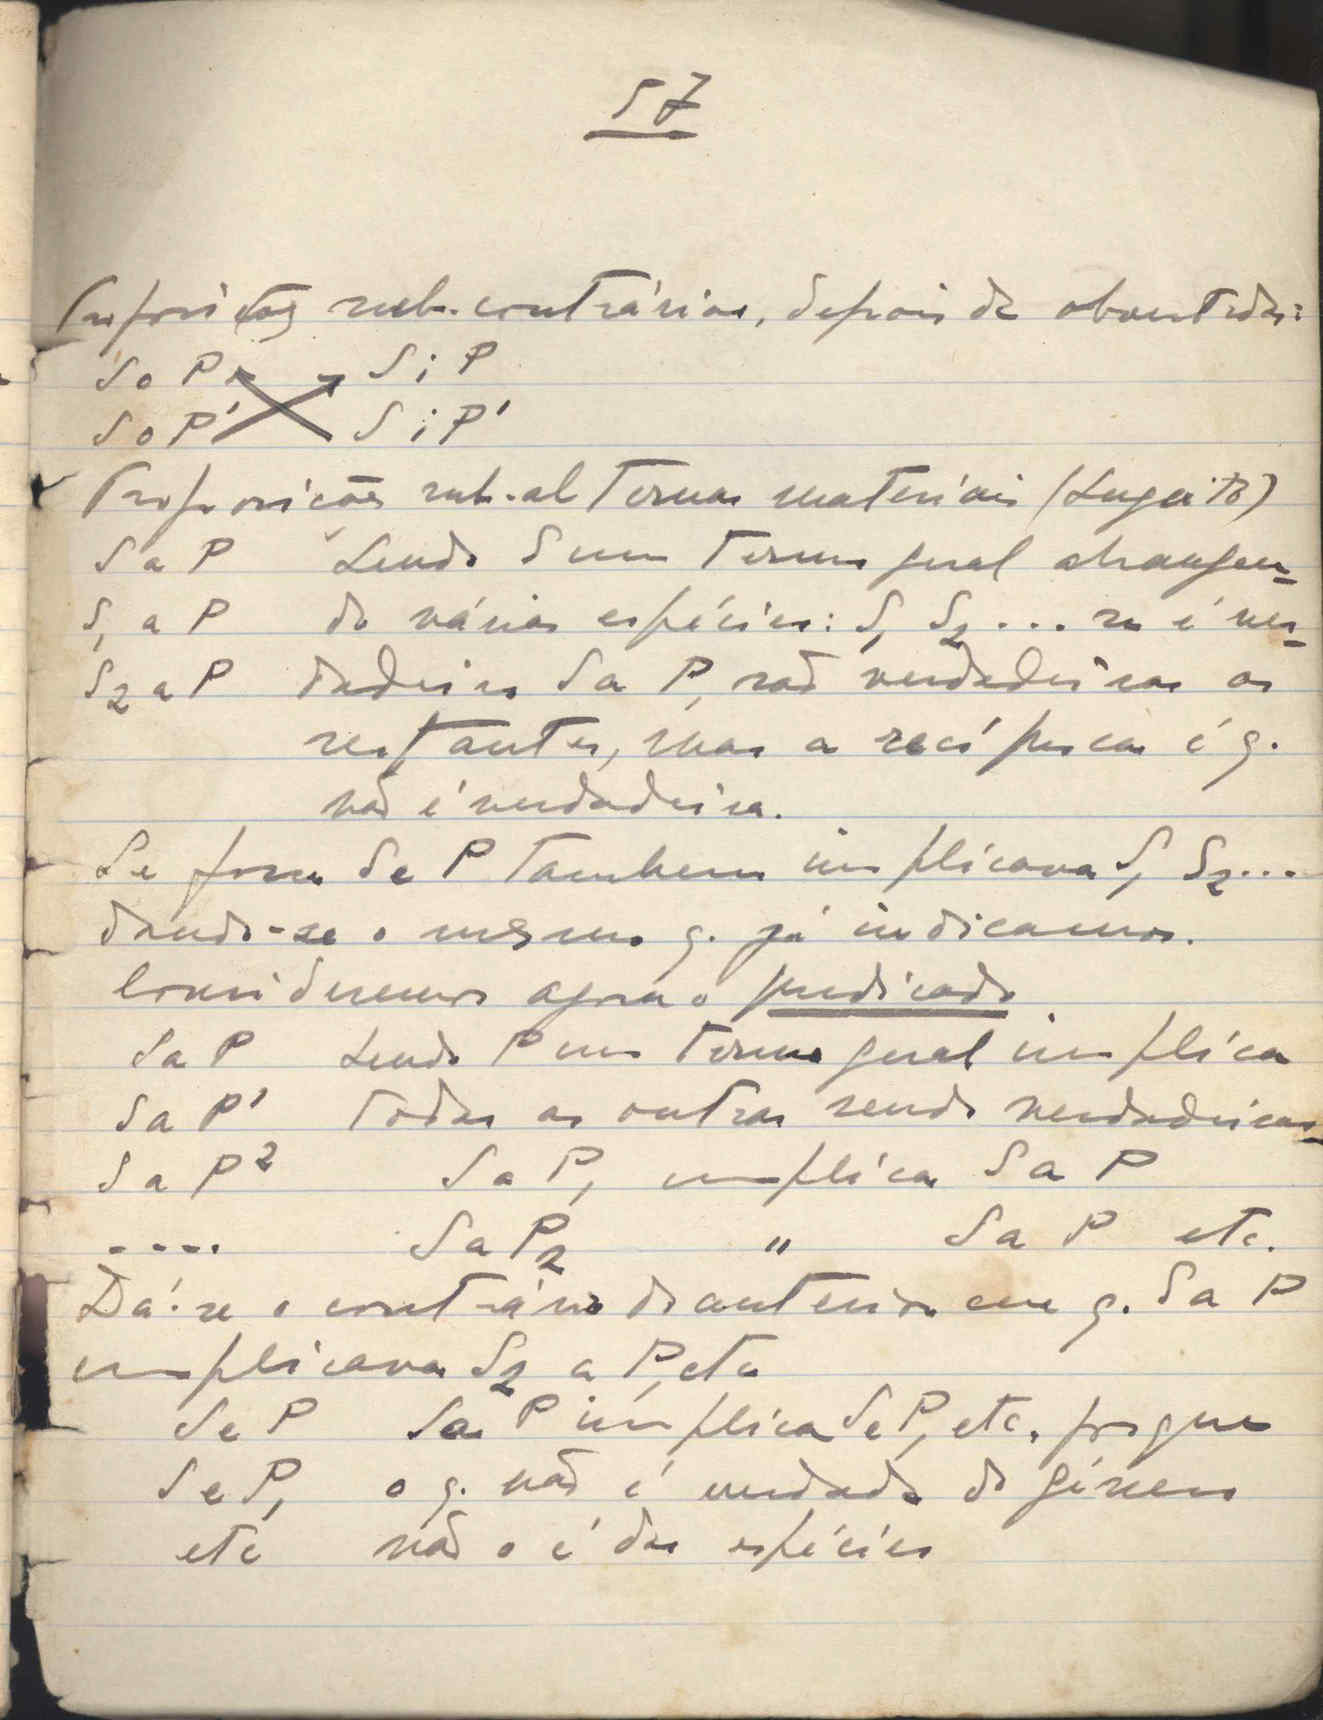 57
Proposições sub-contrárias, depois de obvertidas:
S o P S i P
S o P' S i P'
Proposições sub-alternas materiais (Sujeito)
S a P Sendo S um termo geral abrangen-
S1 a P do várias espécies: S1 S2 ... se é ver-
S2 a P dadeira S a P, são verdadeiras as
restantes, mas a recíproca é q.
não é verdadeira.
Se fora S e P tambem implicava S1 S2...
dando-se o mesmo q. já indicamos.
Consideremos agora o predicado
S a P Sendo P um termo geral implica
S a P' todas as outras sendo verdadeiras
S a P2 S a P1 implica S a P
.... S a P2 " S a P etc.
Dá-se o contrário do anterior em q. S a P
implicava S2 a P, etc
S e P Sa P implica S e P, etc, porque
S e P1 o q. não é verdade do género
etc não o é das espécies